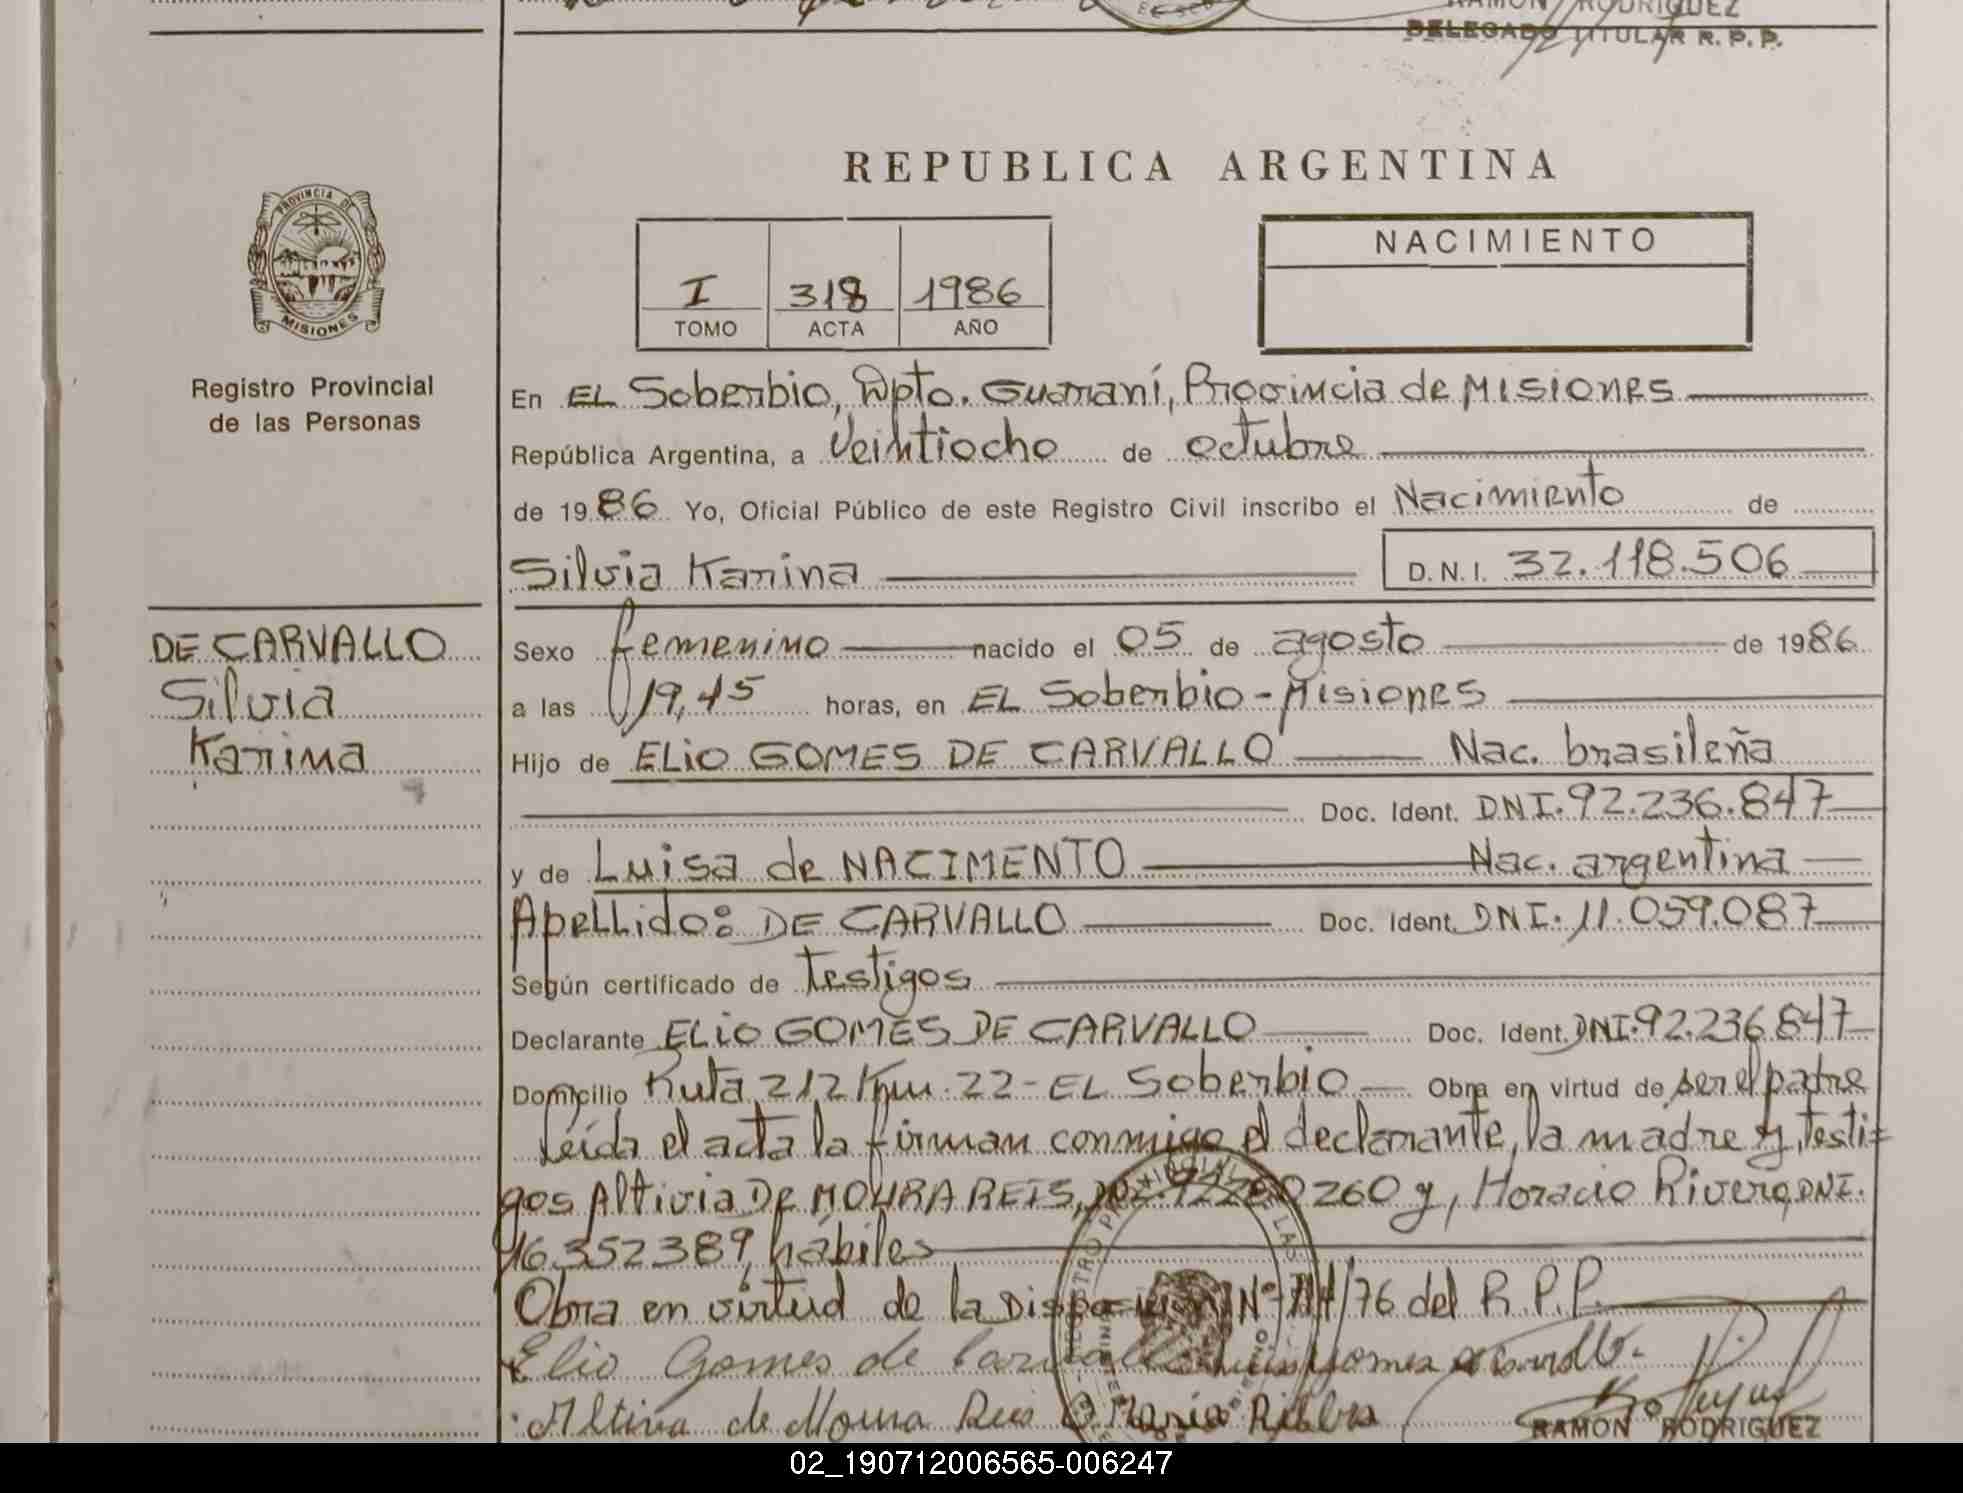 RAMON RODRIGUEZ
DELEGADO TITULAR R. P. P.
REPUBLICA ARGENTINA
PROVINCIA DE
MISIONES
Registro Provincial
de las Personas
I 318 1986
TOMO ACTA AÑO
NACIMIENTO
En EL Soberbio, Dpto. Guaraní, Provincia de Misiones
República Argentina, a Veintiocho de octubre
de 1986 Yo, Oficial Público de este Registro Civil inscribo el Nacimiento de
Silvia Karina D.N.I. 32.118.506
DE CARVALLO
Silvia
Karina
Sexo femenino nacido el 05 de agosto de 1986
a las 19,45 horas, en EL Soberbio - Misiones
Hijo de ELIO GOMES DE CARVALLO Nac. brasileña
Doc. Ident. DNI. 92.236.847
y de Luisa de NACIMENTO Nac. argentina
Apellido: DE CARVALLO Doc. Ident. DNI. 11.059.087
Según certificado de testigos
Declarante ELIO GOMES DE CARVALLO Doc. Ident. DNI. 92.236.847
Domicilio Ruta 212 Km. 22 - EL Soberbio Obra en virtud de ser el padre
Leída el acta la firman conmigo el declarante, la madre y, testi=
gos Altivia De MOURA REIS, 260 y, Horacio Rivero, DNI.
16.352.389, hábiles
Obra en virtud de la Disposición Nº /76 del R. P. P.
Elio Gomes de Carvallo
Altiva de Moura Reis
RAMON RODRIGUEZ
02_190712006565-006247